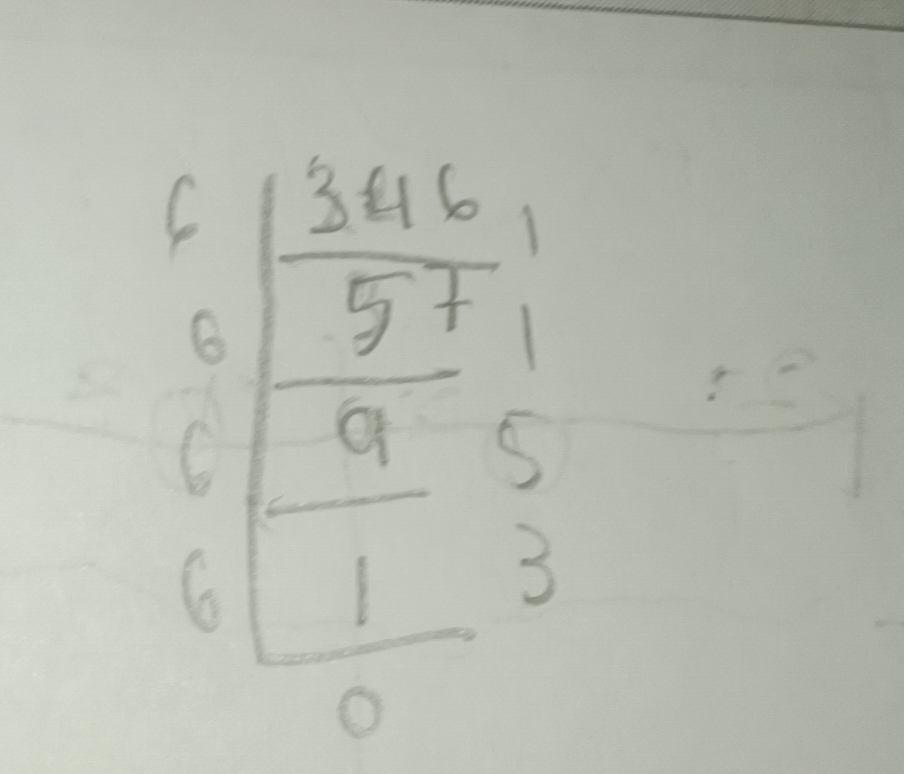 6 346 1
6 57 1
6 9 5
6 1 3
0